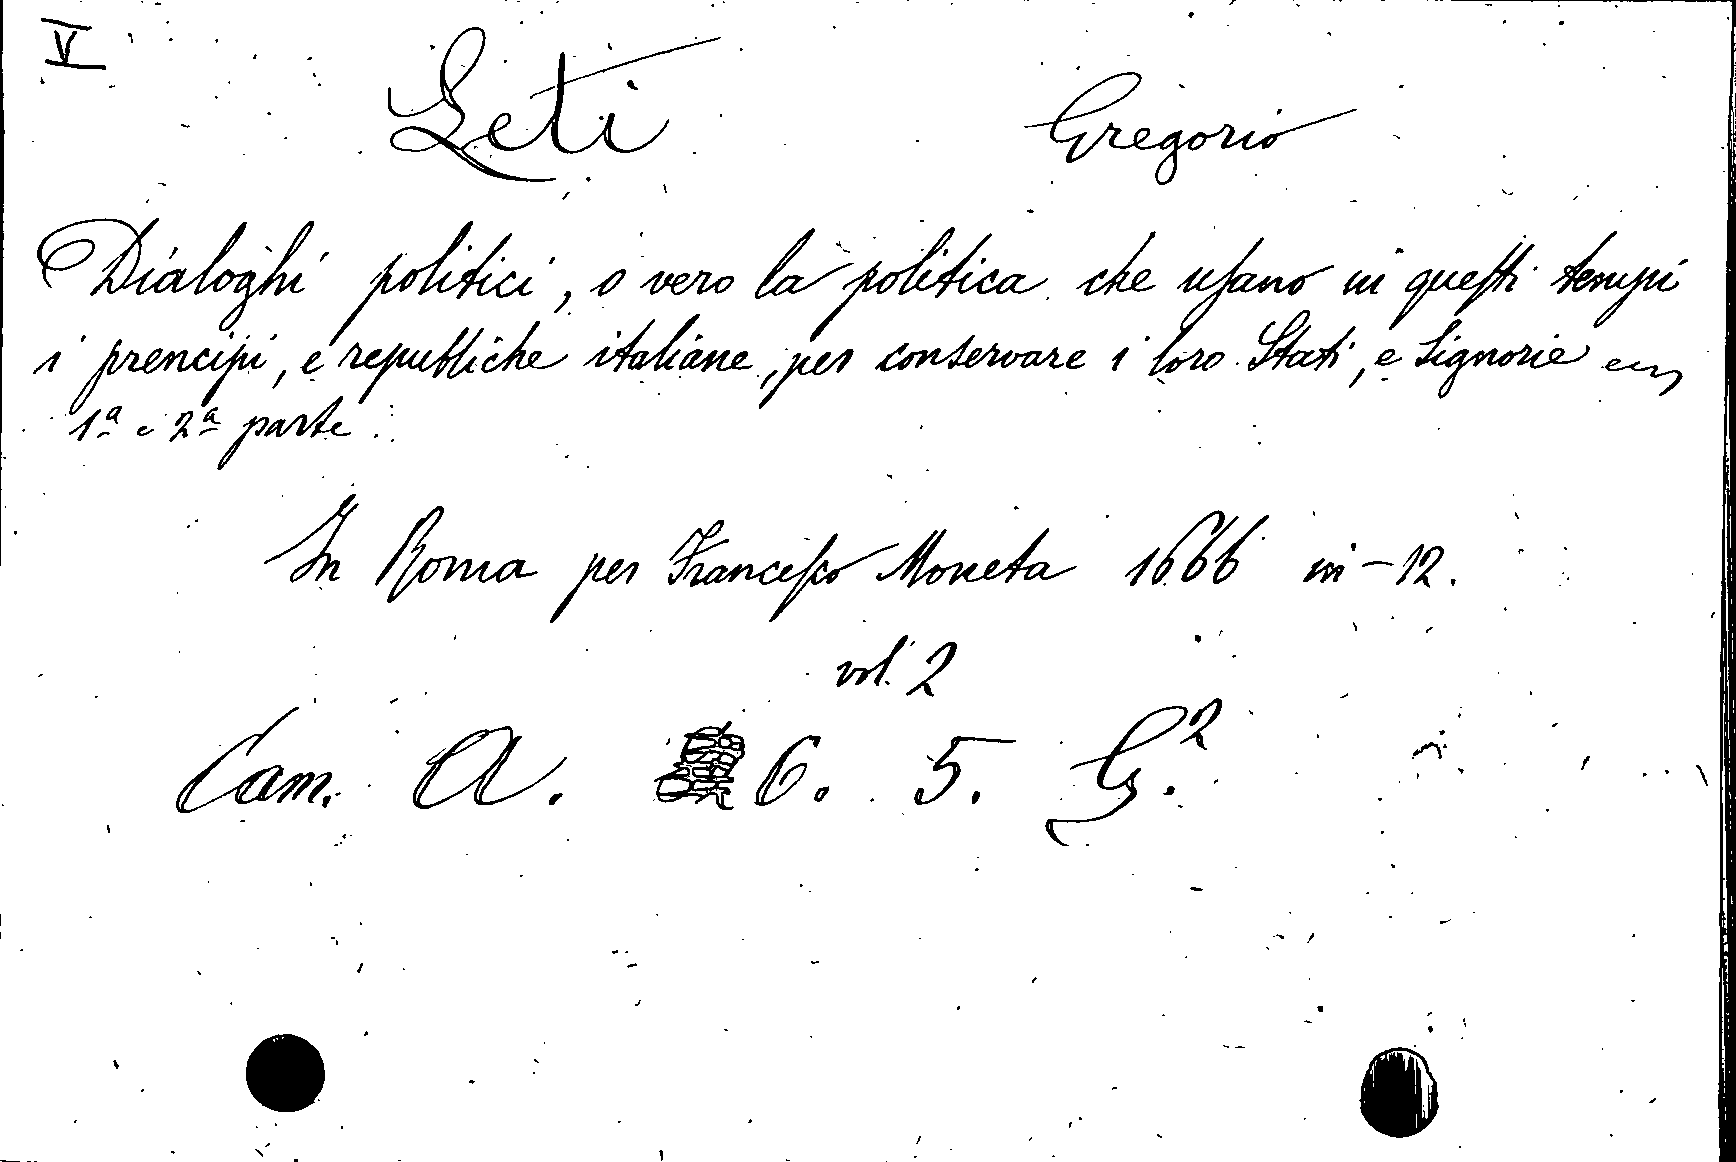 V
Leti Gregorio
Dialoghi politici, o vero la politica che uſano in queſti tempi
i prencipi, e republiche italiane, per conservare i loro Stati, e Signorie
1ª e 2ª parte
In Roma per Franceſco Moneta 1666 in-12.
vol. 2
Cam. A. 6. 5. G.²